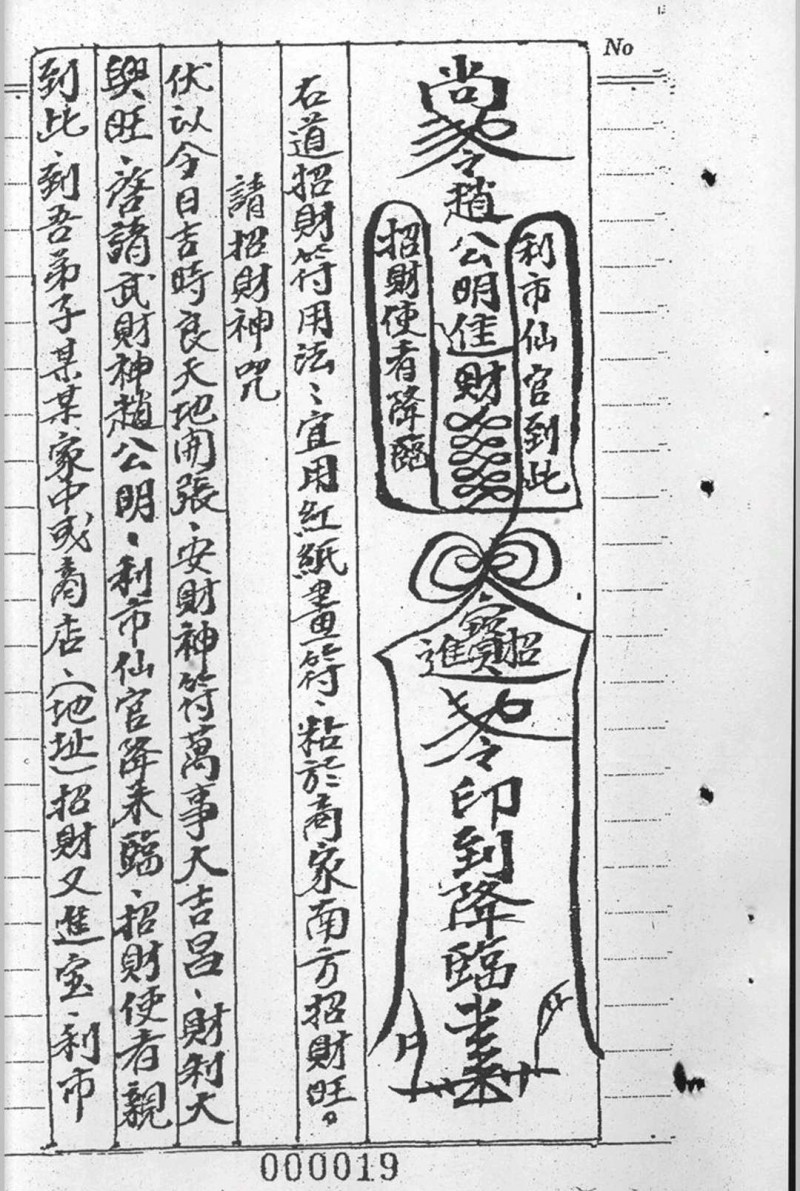 No
趙公明進財
利市仙官到此
招財使者降臨
招寶進
印到降臨
右道招財符用法、宜用紅紙畫符、粘於商家南方招財旺。
請招財神咒
伏以今日吉時良天地開張、安財神符萬事大吉昌、財利大
興旺、啓請武財神趙公明、利市仙官降來臨、招財使者親
到此、到吾弟子某某家中或商店、(地址)招財又進宝、利市
000019